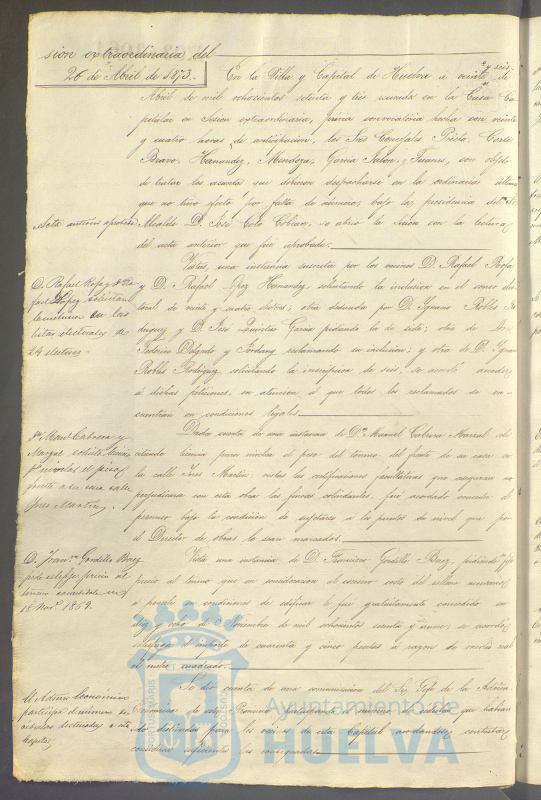 sion extraordinaria del
26 de Abril de 1873.
En la Villa y Capital de Huelva a veinte y seis de
Abril de mil ochocientos setenta y tres reunida en la Casa Ca
pitular en sesion extraordinaria, previa convocatoria hecha con veinte
y cuatro horas de anticipacion, los Sres Concejales Prieto, Corte
Bravo, Hernandez, Mendoza, Garcia Jalon y Suarez, con objeto
de tratar los asuntos que debieron despacharse en la ordinaria ultima
que no tuvo efecto por falta de número, bajo la presidencia del Sr
Acta anterior aprobada
Alcalde D. José Coto Cobian, se abrio la sesion con la lectura
del acta anterior que fué aprobada.
D. Rafael Rofa y D. Ra
fael Lopez solicitan
la inclusion en las
listas electorales de
24 electores.
Vistas, una instancia suscrita por los vecinos D. Rafael Rofa
y D. Rafael Lopez Hernandez, solicitando la inclusion en el censo elec
toral de veinte y cuatro electores; otra deducida por D. Ignacio Robles Ro
driguez y D. José Quintero Garcia pidiendo la de siete; otra de
Federico Delgado y reclamando su inclusion; y otra de D. Ignacio
Robles Rodriguez solicitando la inscripcion de seis, se acordó acceder
á dichas peticiones, en atencion á que todos los reclamados se en
cuentran en condiciones legales.
Dn Manl Cabrera y
Marzal solicita licencia
pa nivelar el piso
frente a su casa calle
Ines Martin.
Dada cuenta de una instancia de Dn Manuel Cabrera Marzal so
licitando licencia para nivelar el piso del terreno del frente de su casa en
la calle Ines Martin: vistas las certificaciones facultativas que aseguran no
perjudicarse con esta obra las fincas colindantes fué acordado conceder el
permiso bajo la condicion de sujetarse á los puntos de nivel que por
el Director de obras le sean marcados.
D. Franco Gordillo Baez
pide se le fije precio al
terreno concedidole en
18 Novre 1869.
Vista una instancia de D. Francisco Gordillo Baez, pidiendo se fije
precio al terreno que en consideracion al excesivo costo del relleno necesario
á ponerlo en condiciones de edificar le fué gratuitamente concedido en
diez y ocho de Noviembre de mil ochocientos sesenta y nueve; se acordó
satisfaga el importe de cuarenta y cinco pesetas á razon de medio real
el metro cuadrado.
El Admon Económica
participa el número de
cédulas destinadas a esta
Capital
Se dio cuenta de una comunicacion del Sr. Gefe de la Admon
Económica de esta Provincia participando el número de cédulas que habian
sido destinadas para los vecinos de esta Capital acordandose contestar
considerar suficientes las consignadas.
Ayuntamiento de
HUELVA